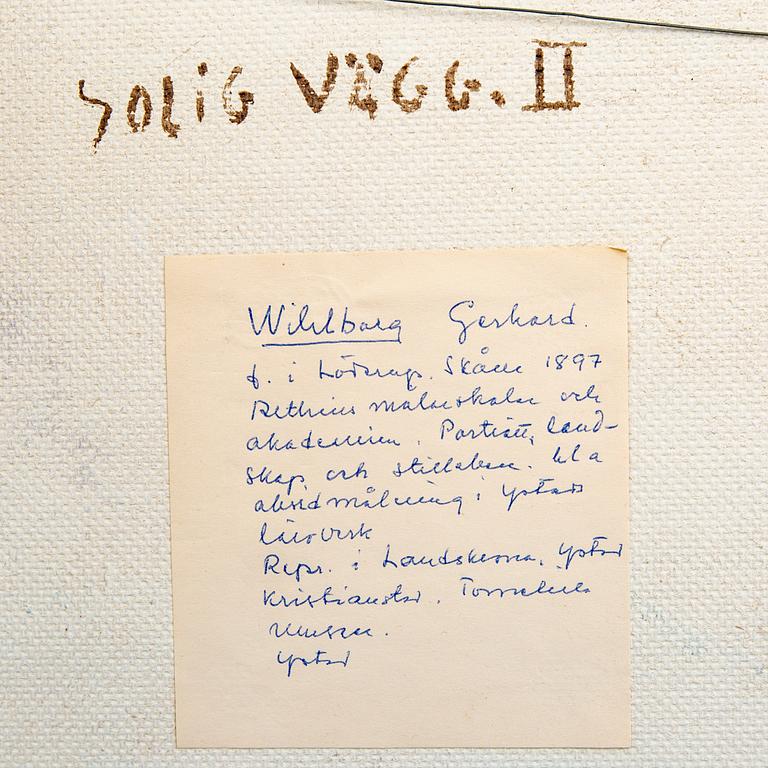 SOLIG VÄGG. II
Wihlborg Gerhard.
f. i Löderup. Skåne 1897
målarskolan och
akademien. Porträtt, land-
skap, och stilleben. bl a
absidmålning i Ystads
läroverk
Repr. i Landskrona, Ystad
Kristianstad. Tomelilla
museer.
Ystad